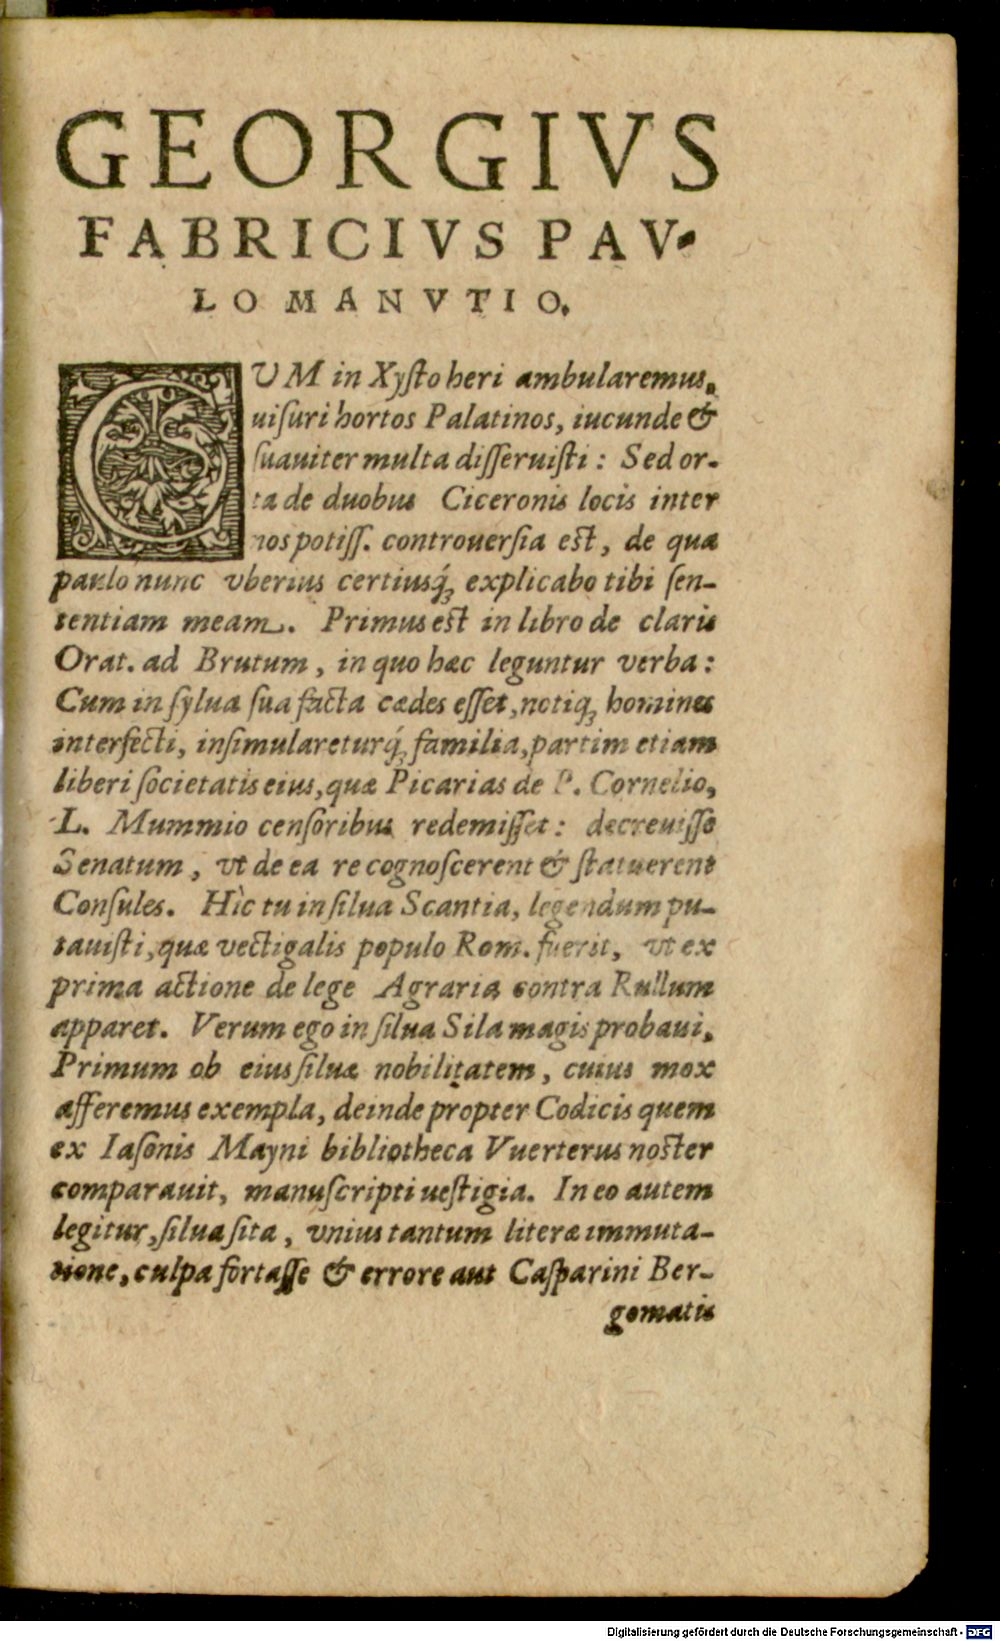 GEORGIVS
FABRICIVS PAV-
LO MANVTIO.
CUM in Xysto heri ambularemus,
uisuri hortos Palatinos, iucunde &
suauiter multa disseruisti: Sed or-
ta de duobus Ciceronis locis inter
nos potiss. controuersia est, de qua
paulo nunc vberius certiusq́; explicabo tibi sen-
tentiam meam. Primus est in libro de claris
Orat. ad Brutum, in quo hæc leguntur verba:
Cum in sylua sua facta cædes esset, notiq; homines
interfecti, insimulareturq́; familia, partim etiam
liberi societatis eius, quæ Picarias de P. Cornelio,
L. Mummio censoribus redemisset: decreuisse
Senatum, vt de ea re cognoscerent & statuerent
Consules. Hìc tu in silua Scantia, legendum pu-
tauisti, quæ vectigalis populo Rom. fuerit, vt ex
prima actione de lege Agraria contra Rullum
apparet. Verum ego in silua Sila magis probaui,
Primum ob eius siluæ nobilitatem, cuius mox
afferemus exempla, deinde propter Codicis quem
ex Iasonis Mayni bibliotheca Vuerterus noster
comparauit, manuscripti uestigia. In eo autem
legitur, silua sita, vnius tantum literæ immuta-
tione, culpa fortasse & errore aut Casparini Ber-
gomatis
Digitalisierung gefördert durch die Deutsche Forschungsgemeinschaft - DFG